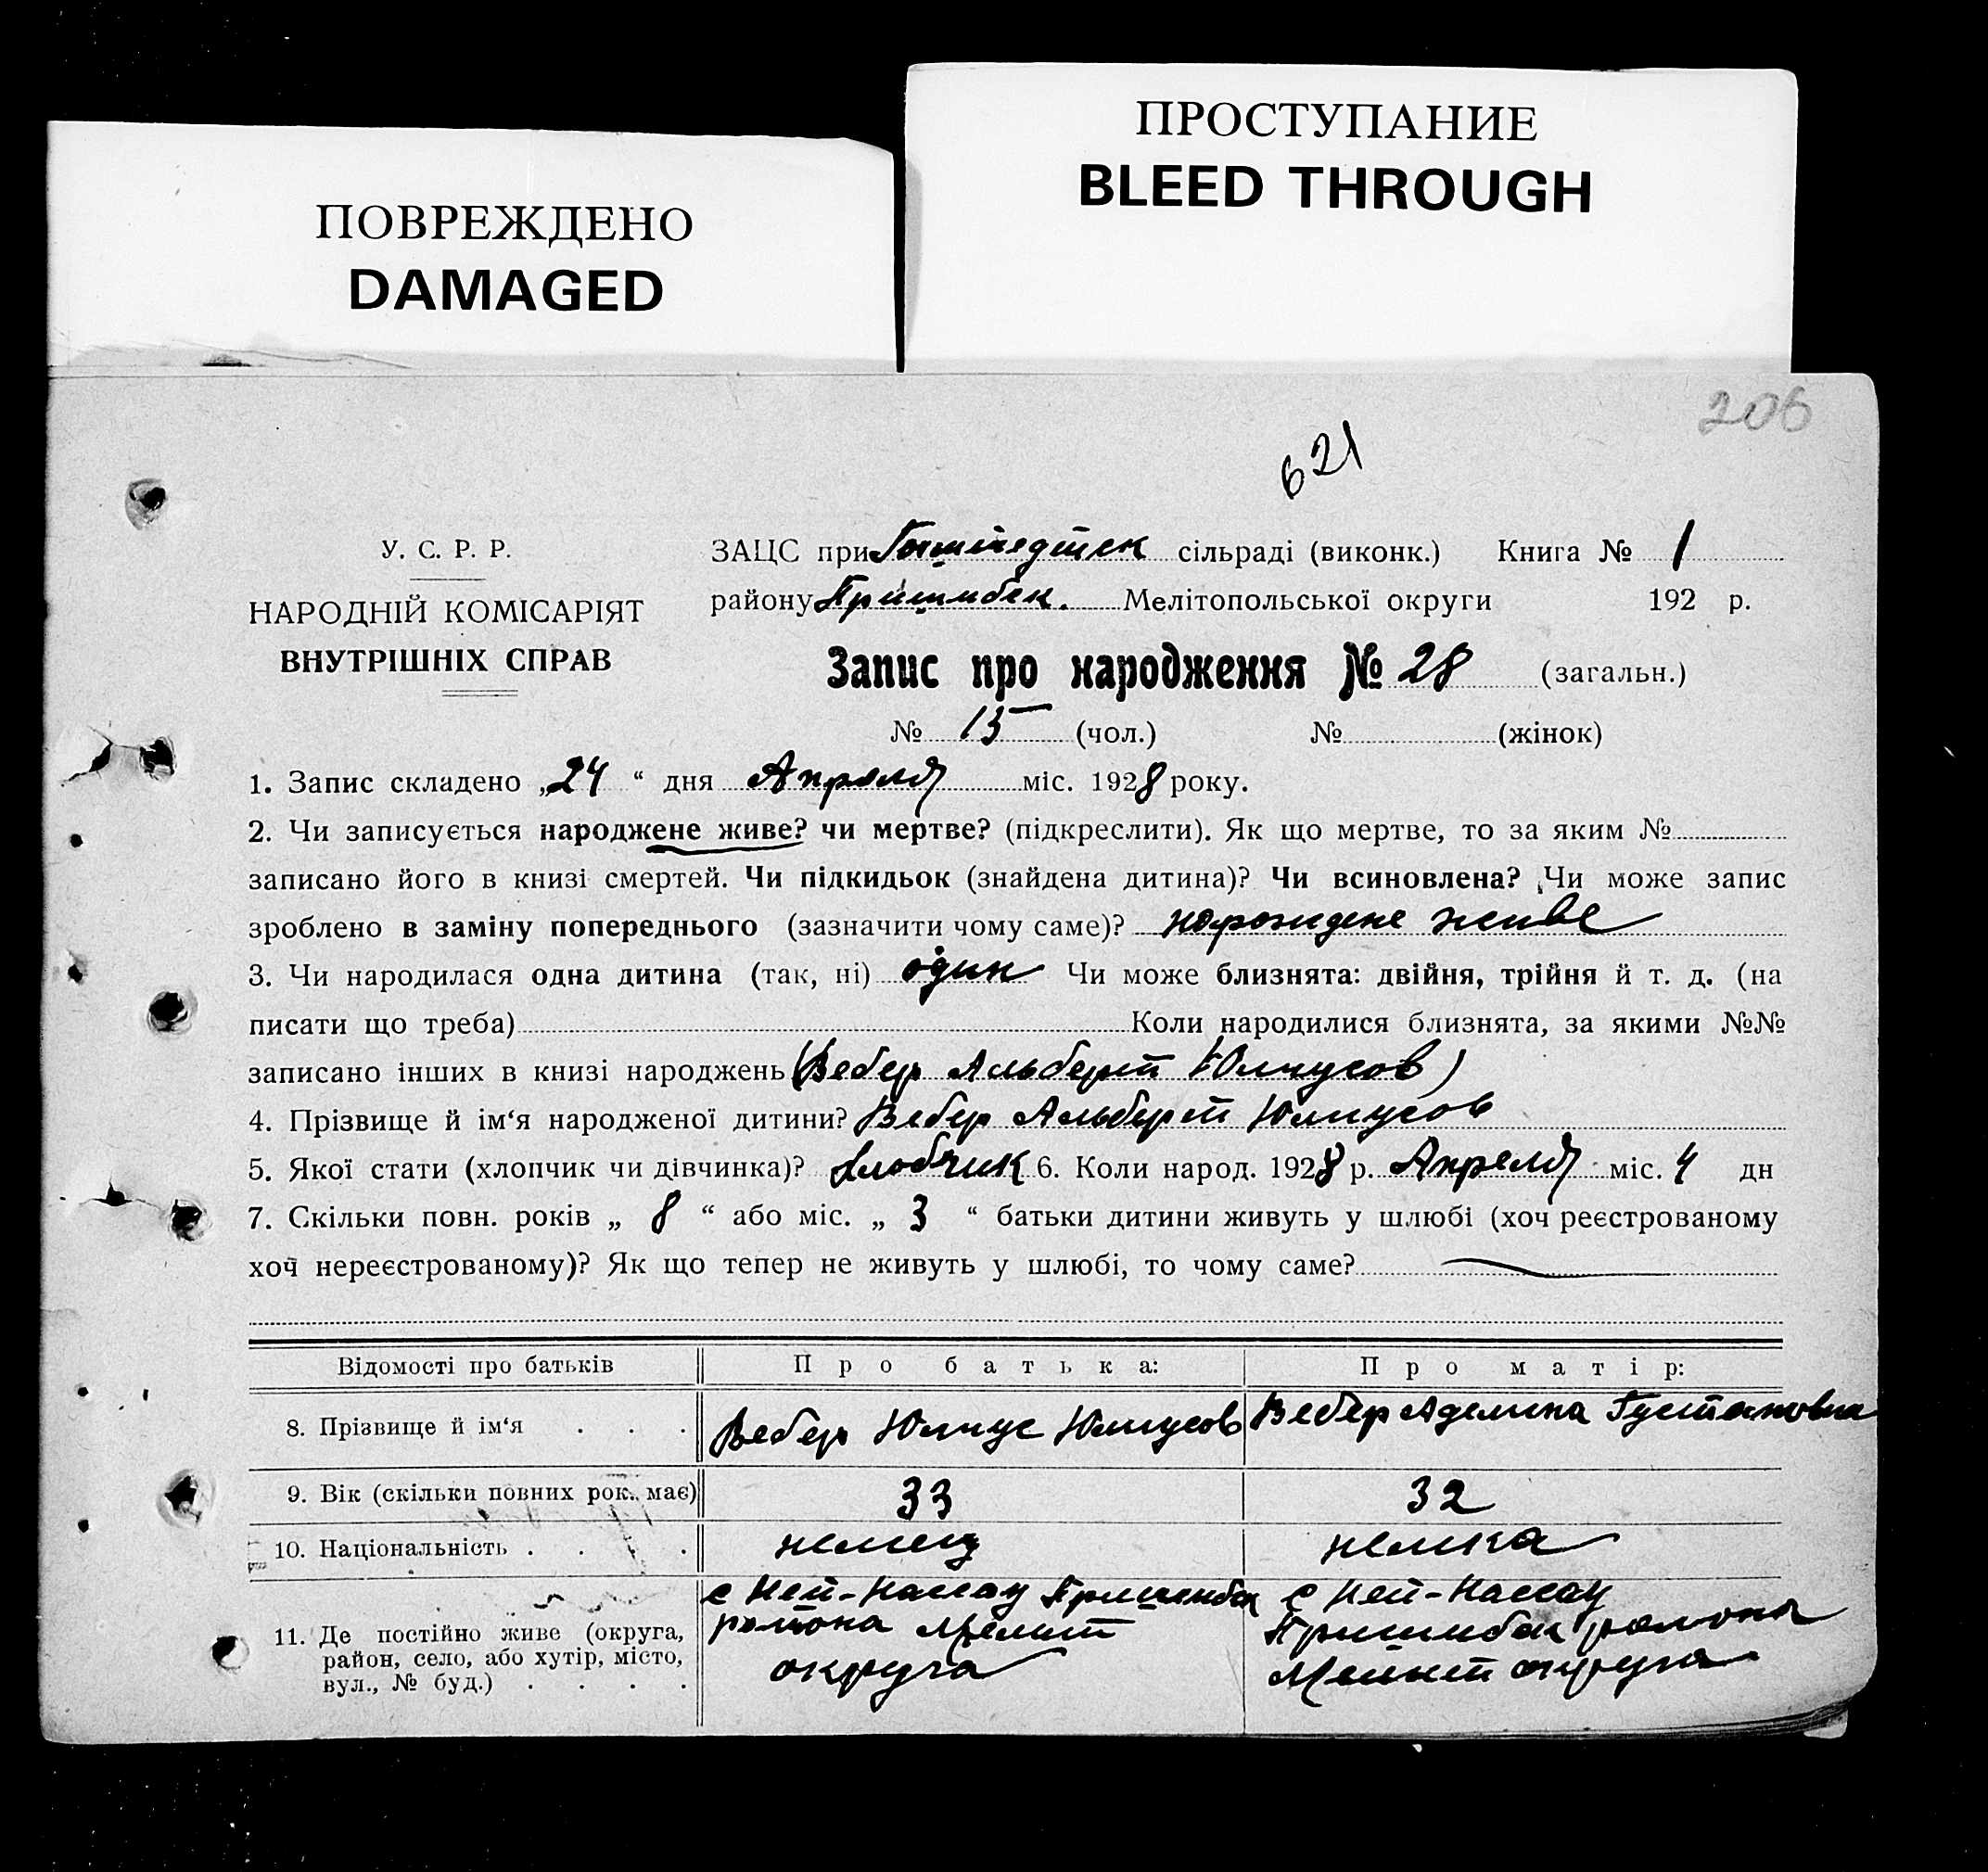 ПОВРЕЖДЕНО
DAMAGED
ПРОСТУПАНИЕ
BLEED THROUGH
206
621
У. С. Р. Р.
НАРОДНІЙ КОМІСАРІЯТ
ВНУТРІШНІХ СПРАВ
ЗАЦС при сільраді (виконк.) Книга № 1
району Пришибск. Мелітопольської округи 192 р.
Запис про народження № 28 (загальн.)
№ 15 (чол.) № (жінок)
1. Запис складено „24“ дня Апреля міс. 1928 року.
2. Чи записується народжене живе? чи мертве? (підкреслити). Як що мертве, то за яким №
записано його в книзі смертей. Чи підкидьок (знайдена дитина)? Чи всиновлена? Чи може запис
зроблено в заміну попереднього (зазначити чому саме)? нарождене живе
3. Чи народилася одна дитина (так, ні) один Чи може близнята: двійня, трійня й т. д. (на
писати що треба) Коли народилися близнята, за якими №№
записано інших в книзі народжень (Вебер Альберт Юлиусов)
4. Прізвище й ім‘я народженої дитини? Вебер Альберт Юлиусов
5. Якої стати (хлопчик чи дівчинка)? хлобчик 6. Коли народ. 1928 р. Апреля міс. 4 дн
7. Скільки повн. років „ 8 “ або міс. „ 3 “ батьки дитини живуть у шлюбі (хоч реєстрованому
хоч нереєстрованому)? Як що тепер не живуть у шлюбі, то чому саме?
Відомості про батьків Про батька: Про матір:
8. Прізвище й ім‘я . . . Вебер Юлиус Юлиусов Вебер Аделина Густавовна
9. Вік (скільки повних рок. має) 33 32
10. Національність . . . . немец немка
11. Де постійно живе (округа,
район, село, або хутір, місто,
вул., № буд.) . . . .
с Ней-Нассау Пришибск
района Мелит
округа
с Ней-Нассау
Пришибск района
Мелит округа